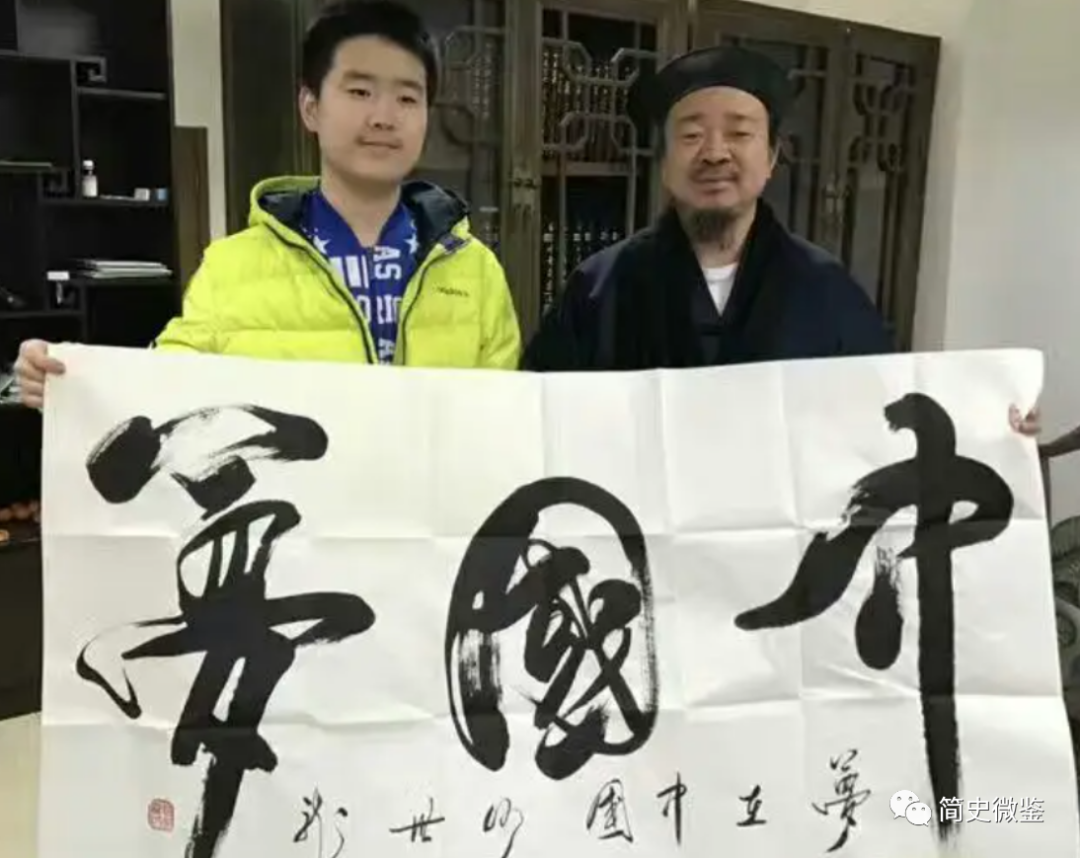 中國夢
夢在中國
简史微鉴